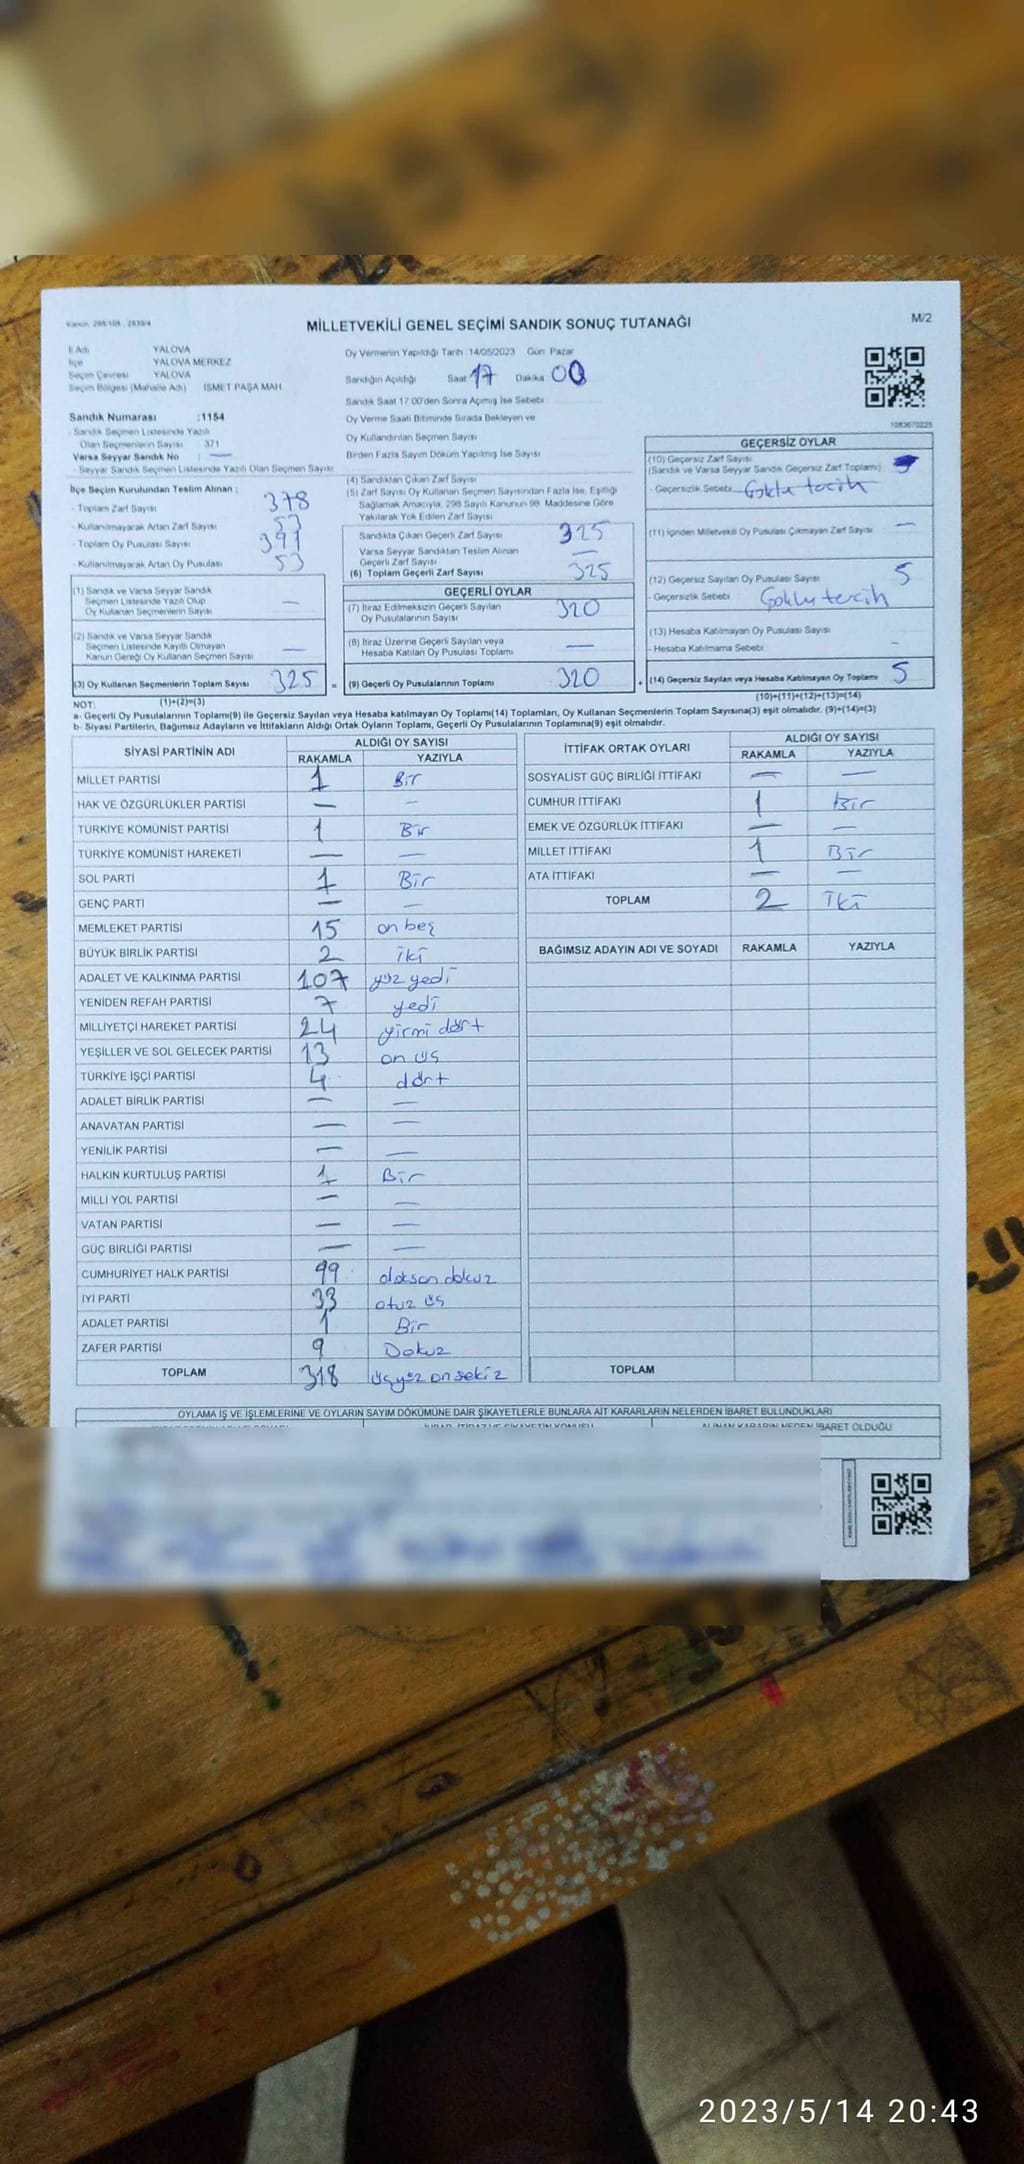 Kanun: 298/105 , 2839/4
MİLLETVEKİLİ GENEL SEÇİMİ SANDIK SONUÇ TUTANAĞI
M/2
İl Adı YALOVA
İlçe YALOVA MERKEZ
Seçim Çevresi YALOVA
Seçim Bölgesi (Mahalle Adı) İSMET PAŞA MAH.
Oy Vermenin Yapıldığı Tarih :14/05/2023 Gün: Pazar
Sandığın Açıldığı Saat 17 Dakika 00
Sandık Saat 17:00'den Sonra Açımış İse Sebebi
Oy Verme Saati Bitiminde Sırada Bekleyen ve
Oy Kullandırılan Seçmen Sayısı
Birden Fazla Sayım Döküm Yapılmış İse Sayısı
1083670225
Sandık Numarası :1154
- Sandık Seçmen Listesinde Yazılı
Olan Seçmenlerin Sayısı 371
Varsa Seyyar Sandık No : —
- Seyyar Sandık Seçmen Listesinde Yazılı Olan Seçmen Sayısı
İlçe Seçim Kurulundan Teslim Alınan :
- Toplam Zarf Sayısı 378
- Kullanılmayarak Artan Zarf Sayısı 53
- Toplam Oy Pusulası Sayısı 391
- Kullanılmayarak Artan Oy Pusulası 53
(1) Sandık ve Varsa Seyyar Sandık
Seçmen Listesinde Yazılı Olup
Oy Kullanan Seçmenlerin Sayısı —
(2) Sandık ve Varsa Seyyar Sandık
Seçmen Listesinde Kayıtlı Olmayan
Kanun Gereği Oy Kullanan Seçmen Sayısı —
(3) Oy Kullanan Seçmenlerin Toplam Sayısı 325
(4) Sandıktan Çıkan Zarf Sayısı
(5) Zarf Sayısı Oy Kullanan Seçmen Sayısından Fazla İse, Eşitliği
Sağlamak Amacıyla, 298 Sayılı Kanunun 98. Maddesine Göre
Yakılarak Yok Edilen Zarf Sayısı
Sandıkta Çıkan Geçerli Zarf Sayısı 325
Varsa Seyyar Sandıktan Teslim Alınan
Geçerli Zarf Sayısı —
(6) Toplam Geçerli Zarf Sayısı 325
GEÇERLİ OYLAR
(7) İtiraz Edilmeksizin Geçerli Sayılan
Oy Pusulalarının Sayısı 320
(8) İtiraz Üzerine Geçerli Sayılan veya
Hesaba Katılan Oy Pusulası Toplamı —
= (9) Geçerli Oy Pusulalarının Toplamı 320
GEÇERSİZ OYLAR
(10) Geçersiz Zarf Sayısı
(Sandık ve Varsa Seyyar Sandık Geçersiz Zarf Toplamı)
- Geçersizlik Sebebi
(11) İçinden Milletvekili Oy Pusulası Çıkmayan Zarf Sayısı —
(12) Geçersiz Sayılan Oy Pusulası Sayısı 5
- Geçersizlik Sebebi Çoklu tercih
(13) Hesaba Katılmayan Oy Pusulası Sayısı
- Hesaba Katılmama Sebebi -
+ (14) Geçersiz Sayılan veya Hesaba Katılmayan Oy Toplamı 5
NOT: (1)+(2)=(3)
(10)+(11)+(12)+(13)=(14)
a- Geçerli Oy Pusulalarının Toplamı(9) ile Geçersiz Sayılan veya Hesaba katılmayan Oy Toplamı(14) Toplamları, Oy Kullanan Seçmenlerin Toplam Sayısına(3) eşit olmalıdır. (9)+(14)=(3)
b- Siyasi Partilerin, Bağımsız Adayların ve İttifakların Aldığı Ortak Oyların Toplamı, Geçerli Oy Pusulalarının Toplamına(9) eşit olmalıdır.
SİYASİ PARTİNİN ADI ALDIĞI OY SAYISI
RAKAMLA YAZIYLA
MİLLET PARTİSİ 1 Bir
HAK VE ÖZGÜRLÜKLER PARTİSİ — —
TÜRKİYE KOMÜNİST PARTİSİ 1 Bir
TÜRKİYE KOMÜNİST HAREKETİ — —
SOL PARTİ 1 Bir
GENÇ PARTİ — —
MEMLEKET PARTİSİ 15 on beş
BÜYÜK BİRLİK PARTİSİ 2 iki
ADALET VE KALKINMA PARTİSİ 107 yüz yedi
YENİDEN REFAH PARTİSİ 7 yedi
MİLLİYETÇİ HAREKET PARTİSİ 24 yirmi dört
YEŞİLLER VE SOL GELECEK PARTİSİ 13 on üç
TÜRKİYE İŞÇİ PARTİSİ 4 dört
ADALET BİRLİK PARTİSİ — —
ANAVATAN PARTİSİ — —
YENİLİK PARTİSİ — —
HALKIN KURTULUŞ PARTİSİ 1 Bir
MİLLİ YOL PARTİSİ — —
VATAN PARTİSİ — —
GÜÇ BİRLİĞİ PARTİSİ — —
CUMHURİYET HALK PARTİSİ 99 doksan dokuz
İYİ PARTİ 33 otuz üç
ADALET PARTİSİ 1 Bir
ZAFER PARTİSİ 9 Dokuz
TOPLAM 318 üçyüz on sekiz
İTTİFAK ORTAK OYLARI ALDIĞI OY SAYISI
RAKAMLA YAZIYLA
SOSYALİST GÜÇ BİRLİĞİ İTTİFAKI — —
CUMHUR İTTİFAKI 1 Bir
EMEK VE ÖZGÜRLÜK İTTİFAKI — —
MİLLET İTTİFAKI 1 Bir
ATA İTTİFAKI — —
TOPLAM 2 İki
BAĞIMSIZ ADAYIN ADI VE SOYADI RAKAMLA YAZIYLA
TOPLAM
OYLAMA İŞ VE İŞLEMLERİNE VE OYLARIN SAYIM DÖKÜMÜNE DAİR ŞİKAYETLERLE BUNLARA AİT KARARLARIN NELERDEN İBARET BULUNDUKLARI
ALINAN KARARIN NEDEN İBARET OLDUĞU
2023/5/14 20:43